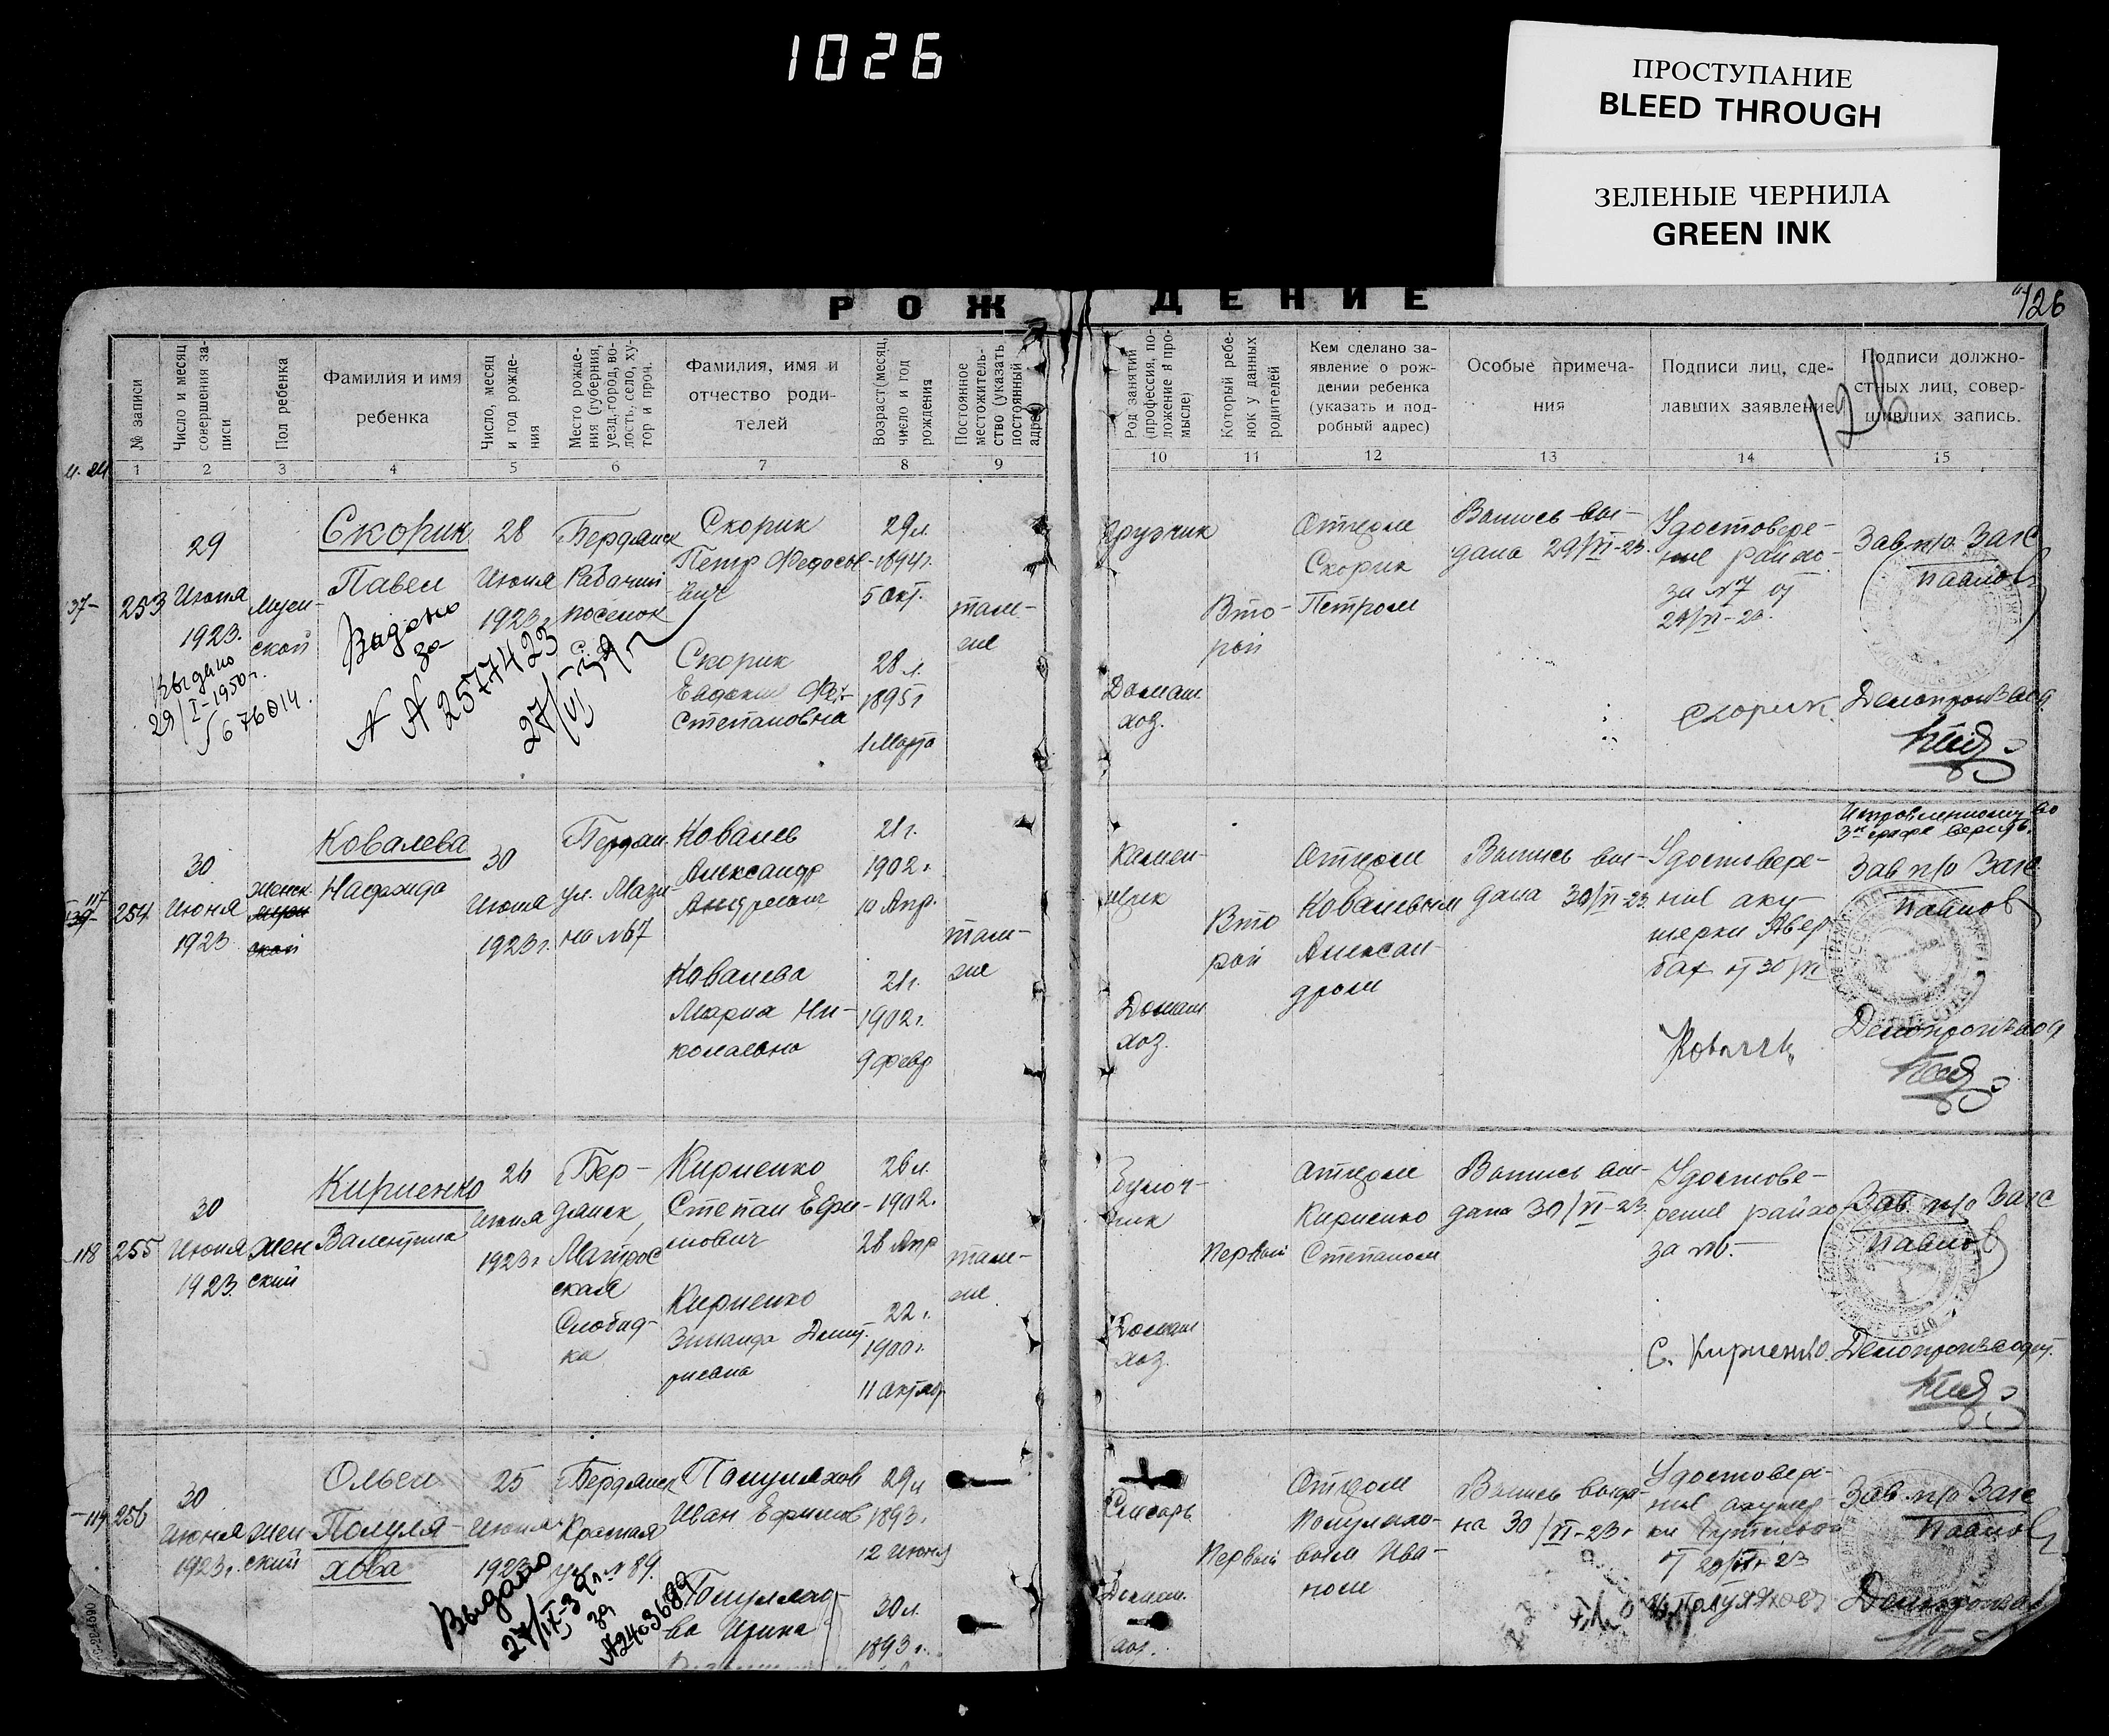 1026
ПРОСТУПАНИЕ
BLEED THROUGH
ЗЕЛЕНЫЕ ЧЕРНИЛА
GREEN INK
РОЖДЕНИЕ
126
126
№ записи
Число и месяц совершения записи
Пол ребенка
Фамилия и имя
ребенка
Число, месяц и год рождения
Место рождения (губерния, уезд, город, волость, село, хутор и проч.
Фамилия, имя и
отчество роди-
телей
Возраст (месяц, число и год рождения
Постоянное местожительство (указать постоянный адрес)
Род занятий (профессия, положение и промысле)
Который ребенок у данных родителей
Кем сделано за-
явление о рож-
дении ребенка
(указать и под-
робный адрес)
Особые примеча-
ния
Подписи лиц, сде-
лавших заявление
Подписи должно-
стных лиц, совер-
шивших запись.
1 2 3 4 5 6 7 8 9 10 11 12 13 14 15
37-
253
29
Июня
1923.
Выдано
29/I-1950г.
676014.
Муж-
ской
Скорик
Павел
Выдано
за
А 2577423
28
Июня
1923г
Бердянск
Рабочий
поселок
Скорик
Петр Федосе-
вич
Скорик
Евдокия
Степановна
29л.
1894г.
5 окт.
28л.
1895г
1 Марта
там-
же
Грузчик
Домаш.
хоз.
Вто-
рой
Отцом
Скорик
Петром
Выпись вы-
дана 29/VI-23.
Удостовере-
ние райко-
за №7 от
Скорик.
Зав п/о Загс
Павлов
Делопроизвод
117
254
30
Июня
1923
женск.
Ковалева
Надежда
30
Июня
1923г.
Бердян.
ул. Мази-
на №67
Ковалев
Александр
Андреевич
Ковалева
Мария Ни-
колаевна
21г.
1902г.
10 Апр.
21г.
1902г.
9 февр
там-
же
Камен-
щик
Домаш
хоз.
Вто
рой
Отцом
Ковалевым
Алексан-
дром
Выпись вы-
дана 30/VI-23.
Удостовере-
ние аку-
шерки Авер
бах от 30/VI
Исправленному во
3й графе верить.
Зав п/о Загс
Павлов
Делопроизвод
118
255
30
Июня
1923.
Жен
ский
Кириенко
Валентина
26
Июня
1923г
Бер-
дянск,
Матрос
ская
Слобод-
ка
Кириенко
Степан Ефи-
мович
Кириенко
Зинаида Дмит-
риевна
1902.
28 Апр
22г.
1900г.
11 октябр
там-
же
Булоч-
ник
Домаш
хоз.
Первый
Отцом
Кириенко
Степаном
Выпись вы-
дана 30/VI-23.
Удостове-
рение райко
за №6.
С. Кириенко.
Зав. п/о Загс
Павлов
Делопроизводит.
119
256
30
Июня
1923г.
Жен-
ский
Ольга
Полуля-
хова
25
Июня
1923
Бердянск
Красная
ул. №89.
Выдано
27/IX-39г.
за
А2403689
Полуляхов
Иван Ефимов
Полуляхо-
ва Ирина
29л
1893г.
12 Июня
30л.
1893г.
Слесарь
Домаш.
хоз.
Первый
Отцом
Полуляхо-
вым Ива-
ном
Выпись выда-
на 30/VI-23г
Удостовер-
ние акушер
Зав. п/о Загс
Павлов
Делопроизвод